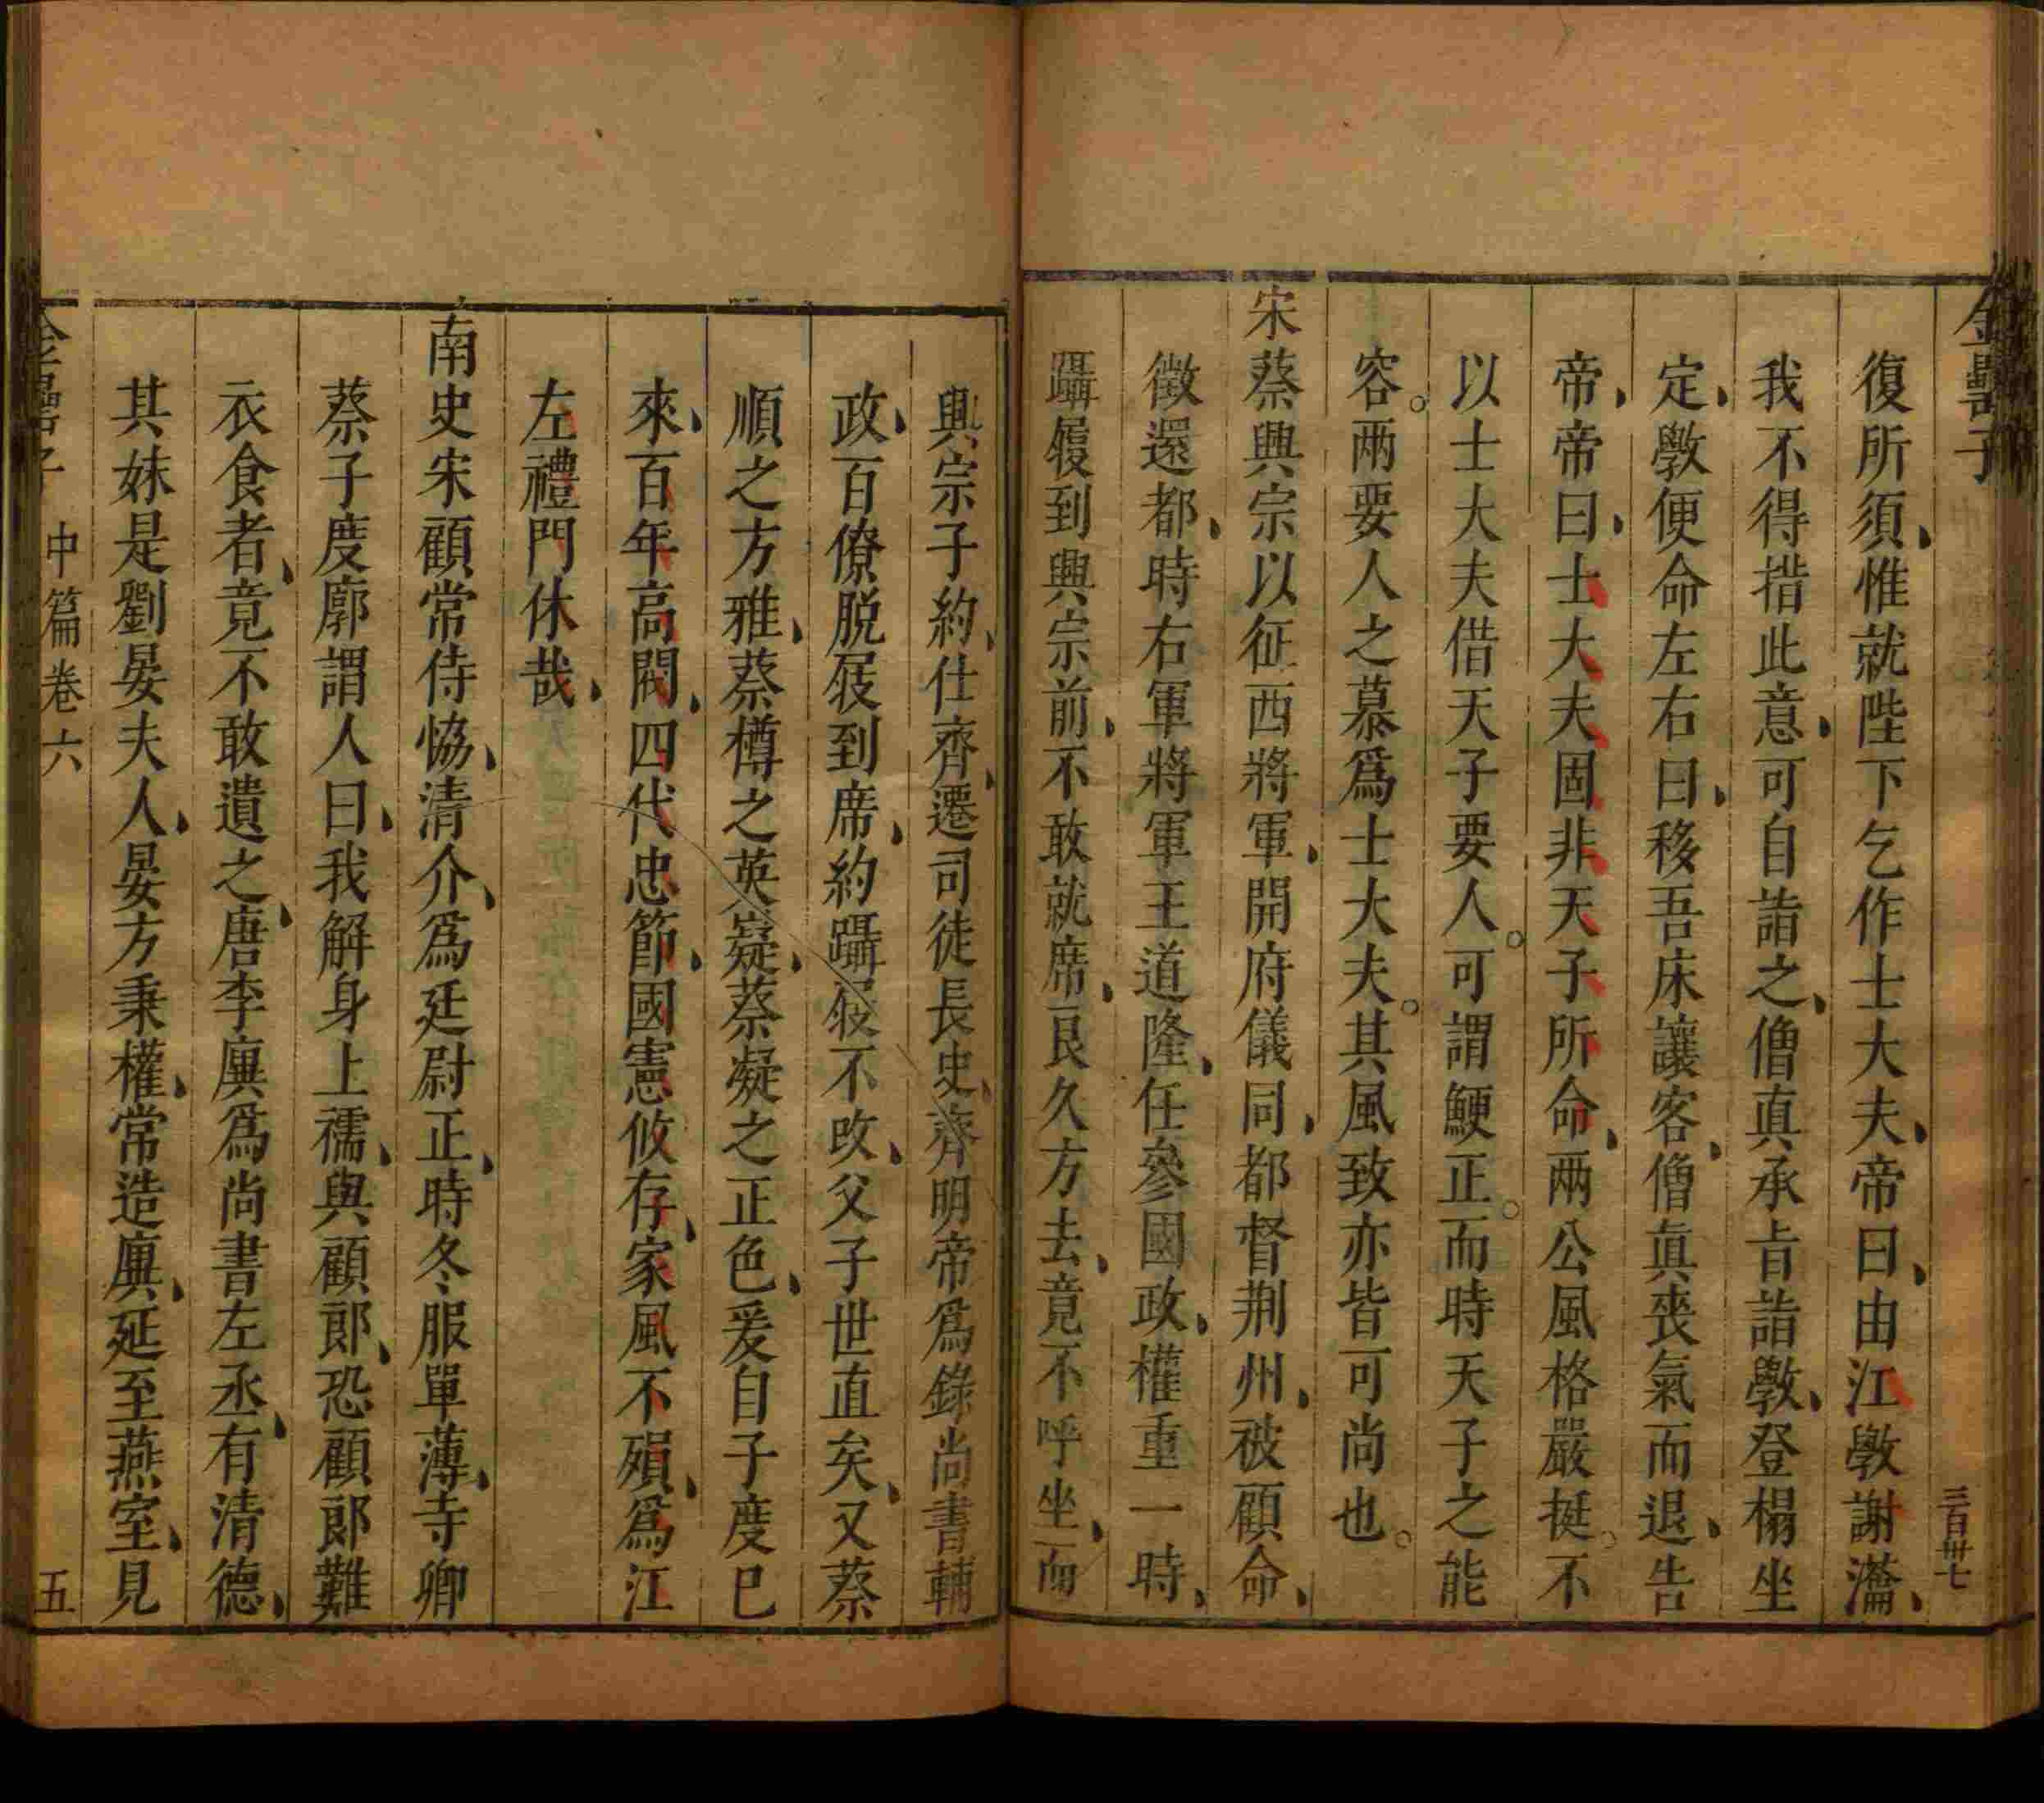 金罍子
三百卅七
復所須惟就陛下乞作士大夫帝曰由江斆謝瀹
我不得措此意可自詣之僧真承旨詣斆登榻坐
定斆便命左右曰移吾床讓客僧眞喪氣而退告
帝帝曰士大夫固非天子所命兩公風格嚴挺不
以士大夫借天子要人可謂鯁正而時天子之能
容兩要人之慕爲士大夫其風致亦皆可尚也
宋蔡興宗以征西將軍開府儀同都督荆州被顧命
徵還都時右軍將軍王道隆任參國政權重一時
躡履到興宗前不敢就席良久方去竟不呼坐而
興宗子約仕齊遷司徒長史齊明帝爲錄尚書輔
政百僚脱屐到席約躡屐不改父子世直矣又蔡
順之方雅蔡樽之英嶷蔡凝之正色爰自子度已
來百年高閥四代忠節國憲攸存家風不殞爲江
左禮門休哉
南史宋顧常侍恊清介爲廷尉正時冬服單薄寺卿
蔡子度廓謂人曰我解身上襦與顧郎恐顧郎難
衣食者竟不敢遺之唐李廙爲尚書左丞有清德
其妹是劉晏夫人晏方秉權常造廙延至燕室見
金罍子 中篇卷六 五